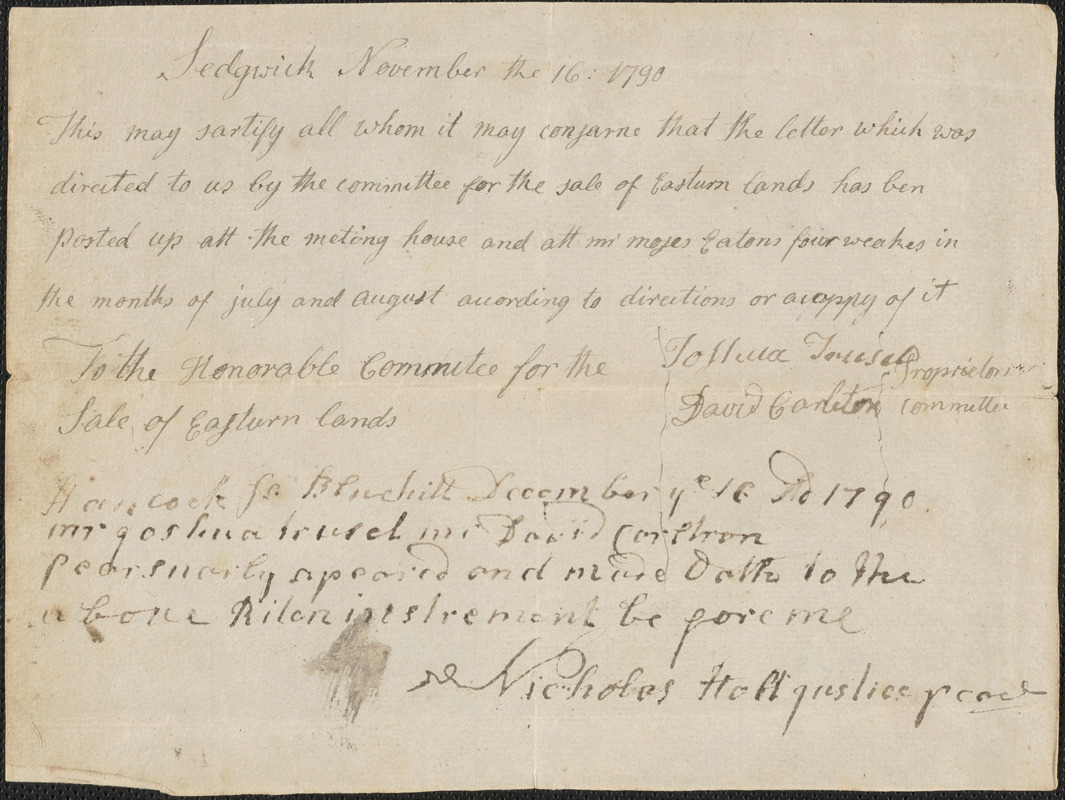 Sedgwick November the 16: 1790
This may sartify all whom it may consarne that the letter which was
directed to us by the committee for the sale of Easturn lands has ben
posted up att the meting house and att mr moses Eatons four weakes in
the months of july and august acording to directions or acoppy of it
To the Honorable Commitee for the
Sale of Easturn lands
Joshua Trusel
David Carleton
Proprietors
Committee
Hancock ss Bluehill December ye 16 AD 1790
mr goshua trusel mr David Carltron
pearsnarly apeared and made Oath to the
above Riten instrement be fore me
Nicholas Holt justice peace